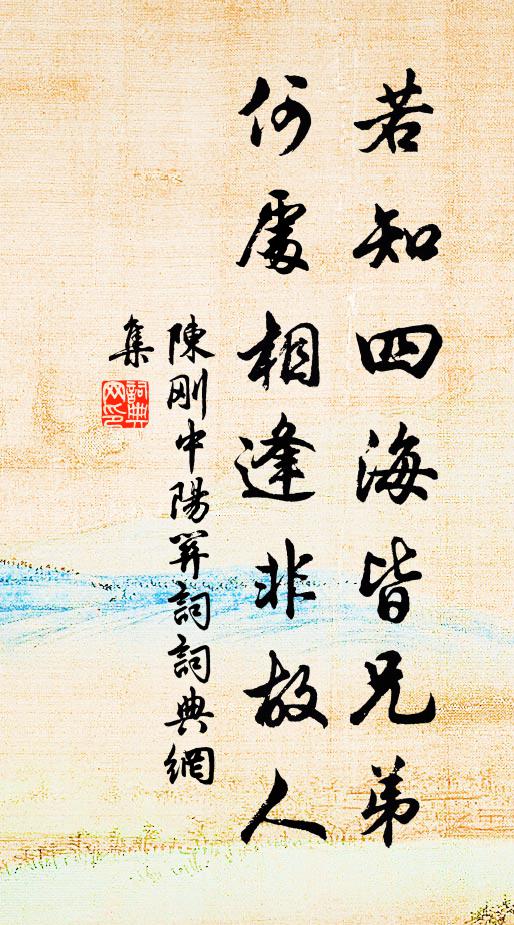 若知四海皆兄弟
何處相逢非故人
陳剛中陽羨詞詞典網
集
詞典
网印